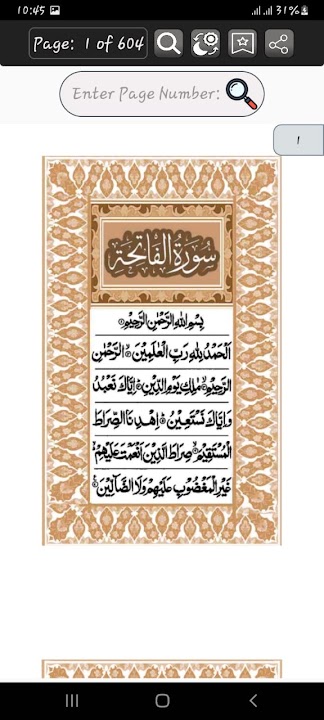 10:45
31%
Page: 1 of 604
Enter Page Number:
١
سُورَةُ الْفَاتِحَةِ
بِسْمِ اللهِ الرَّحْمٰنِ الرَّحِيْمِ ①
اَلْحَمْدُ لِلّٰهِ رَبِّ الْعٰلَمِيْنَ ② الرَّحْمٰنِ
الرَّحِيْمِ ③ مٰلِكِ يَوْمِ الدِّيْنِ ④ اِيَّاكَ نَعْبُدُ
وَاِيَّاكَ نَسْتَعِيْنُ ⑤ اِهْدِنَا الصِّرَاطَ
الْمُسْتَقِيْمَ ⑥ صِرَاطَ الَّذِيْنَ اَنْعَمْتَ عَلَيْهِمْ
غَيْرِ الْمَغْضُوْبِ عَلَيْهِمْ وَلَا الضَّآلِّيْنَ ⑦